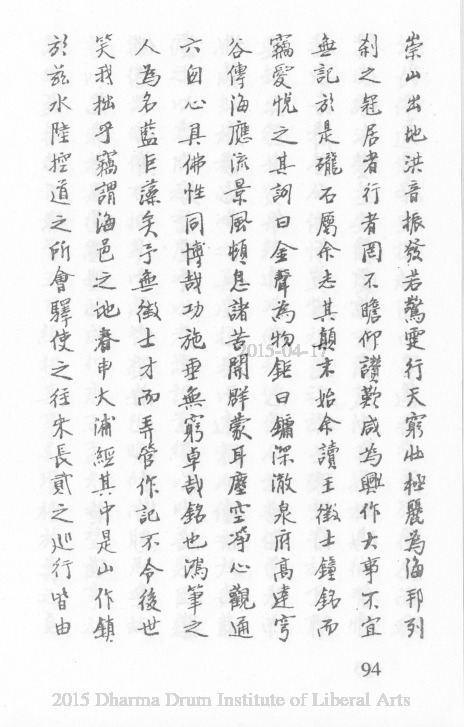 崇山出地洪音振發若驚霆行天窮壯極麗為海邦列
剎之冠居者行者罔不瞻仰讚歎咸為興作大事不宜
無記於是礲石屬余志其顛末始余讀王徵士鐘銘而
竊愛悅之其詞曰金聲為物鉅曰鏞深澈泉府高達穹
谷傳海應流景風頓息諸苦開群蒙耳塵空淨心觀通
六自心具佛性同博哉功施垂無窮卓哉銘也鴻筆之
人為名藍巨藻矣予無徵士才而弄管作記不令後世
笑我拙乎竊謂海邑之地春申大浦經其中是山作鎮
於茲水陸控道之所會驛使之往來長貳之巡行皆由
94
2015-04-17
2015 Dharma Drum Institute of Liberal Arts